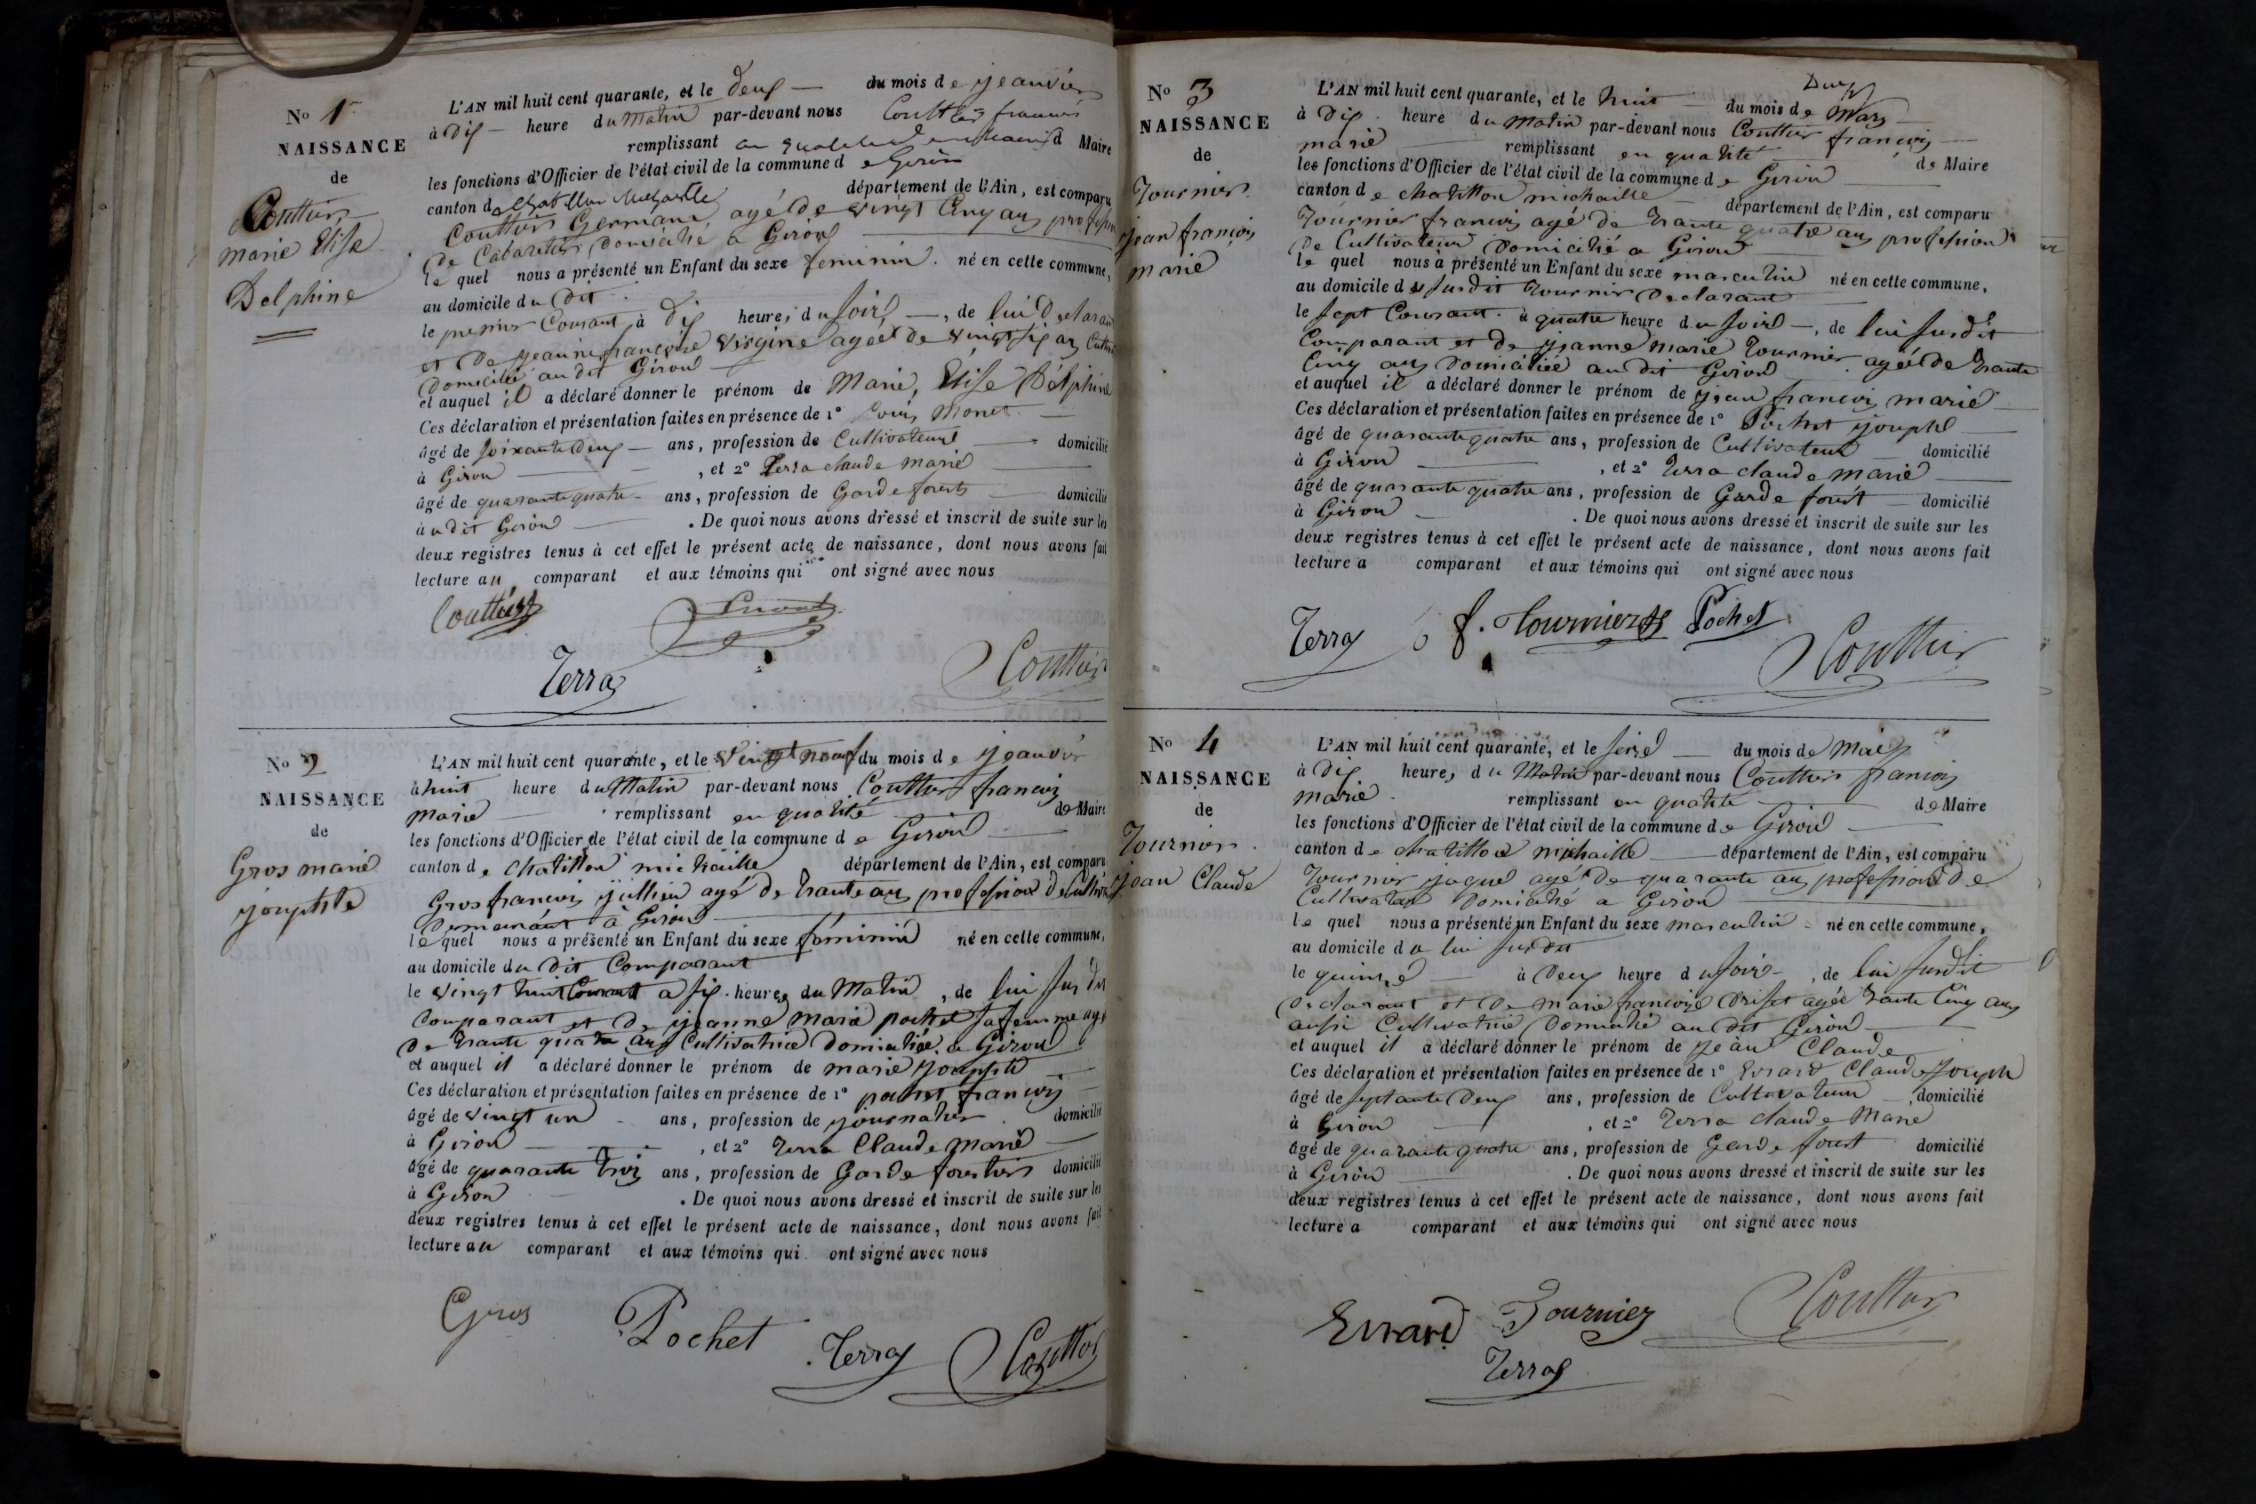 No 1er
NAISSANCE
de
Couttier
marie Elise
Delphine
L'AN mil huit cent quarante, et le deux — du mois de jeanvier
à dix — heure du Matin par-devant nous Couttier francois
remplissant en qualité d Maire
les fonctions d'Officier de l'état civil de la commune de Giron
canton de Chatillon Michaille département de l'Ain, est comparu
Couttier Germain agé de vingt Cinq ans profession
de Cabaretier Domicilié a Giron
le quel nous a présenté un Enfant du sexe feminin né en cette commune,
au domicile du dit
le premier Courant à dix heures du soir —, de lui Declarant
et de jeanne francoise Virginie agéé de vingt six ans
Domicilié au dit Giron
et auquel il a déclaré donner le prénom de Marie, Elise Delphine
Ces déclaration et présentation faites en présence de 1° Louis Monet
âgé de soixante deux — ans, profession de Cultivateur — domicilié
à Giron — , et 2° Terra claude marie
âgé de quarante quatre — ans, profession de Garde forets — domicilié
à u dit Giron — . De quoi nous avons dressé et inscrit de suite sur les
deux registres tenus à cet effet le présent acte de naissance, dont nous avons fait
lecture au comparant et aux témoins qui ont signé avec nous
Couttier
Terra Couttier
No 2
NAISSANCE
de
Gros marie
jouphte
L'AN mil huit cent quarante, et le Vingt neuf du mois de jeanvier
à huit heure du Matin par-devant nous Couttier francois
marie remplissant en qualité de Maire
les fonctions d'Officier de l'état civil de la commune de Giron
canton de Chatillon michaille département de l'Ain, est comparu
Gros francois jullien agé de trante ans profession de
Demeurant à Giron
le quel nous a présenté un Enfant du sexe féminin né en cette commune,
au domicile du dit Comparant
le vingt huit Courant a six heures du Matin, de lui sus dit
Comparant et de jeanne marie pochet sa femme agé
de trante quatre ans Cultivatrice Domiciliée a Giron
et auquel il a déclaré donner le prénom de marie jouphte
Ces déclaration et présentation faites en présence de 1° pochet francois
âgé de vingt un ans, profession de journalier domicilié
à Giron — , et 2° Terra Claude Marie
âgé de quarante trois ans, profession de Garde forestier domicilié
à Giron . De quoi nous avons dressé et inscrit de suite sur les
deux registres tenus à cet effet le présent acte de naissance, dont nous avons fait
lecture au comparant et aux témoins qui ont signé avec nous
Gros Pochet Terra Couttier
No 3
NAISSANCE
de
Tournier
jean francois
marie
L'AN mil huit cent quarante, et le huit — du mois de Mars
à dix heure du Matin par-devant nous Couttier francois
marie remplissant en qualité de Maire
les fonctions d'Officier de l'état civil de la commune de Giron
canton de chatillon michaille — département de l'Ain, est comparu
Tournier francois agé de trante quatre ans profession
de Cultivateur Domicilié a Giron
le quel nous à présenté un Enfant du sexe masculin né en cette commune,
au domicile du susdit tournier Declarant
le sept Courant à quatre heure du soir —, de lui susdit
Comparant et de jeanne marie Tournier agéé de trante
Cinq ans Domiciliéé au dit Giron
et auquel il a déclaré donner le prénom de jean francois marie
Ces déclaration et présentation faites en présence de 1° Pochet jouphe
âgé de quarante quatre ans, profession de Cultivateur domicilié
à Giron — , et 2° Terra claude marie
âgé de quarante quatre ans, profession de Garde forêt — domicilié
à Giron — . De quoi nous avons dressé et inscrit de suite sur les
deux registres tenus à cet effet le présent acte de naissance, dont nous avons fait
lecture a comparant et aux témoins qui ont signé avec nous
Terra f. Tournier Pochet
Couttier
No 4
NAISSANCE
de
Tournier
jean Claude
L'AN mil huit cent quarante, et le seize — du mois de Mars
à dix heures du Matin par-devant nous Couttier francois
marie remplissant en qualité de Maire
les fonctions d'Officier de l'état civil de la commune de Giron
canton de chatillon michaille — département de l'Ain, est comparu
Tournier jaque agé de quarante ans profession de
Cultivateur Domicilié a Giron
le quel nous a présenté un Enfant du sexe masculin né en cette commune,
au domicile de lui susdit
le quinze — à deux heure du soir —, de lui susdit
Declarant et de marie francoise agée trante Cinq ans
ausi Cultivatrice Domicilié au dit Giron
et auquel il a déclaré donner le prénom de jeàn Claude
Ces déclaration et présentation faites en présence de 1° Evrard Claude Jouph
âgé de septante deux ans, profession de Cultivateur domicilié
à Giron , et 2° Terra claude Marie
âgé de quarante quatre ans, profession de Garde forest domicilié
à Giron . De quoi nous avons dressé et inscrit de suite sur les
deux registres tenus à cet effet le présent acte de naissance, dont nous avons fait
lecture a comparant et aux témoins qui ont signé avec nous
Evrard Tournier Couttier
Terra